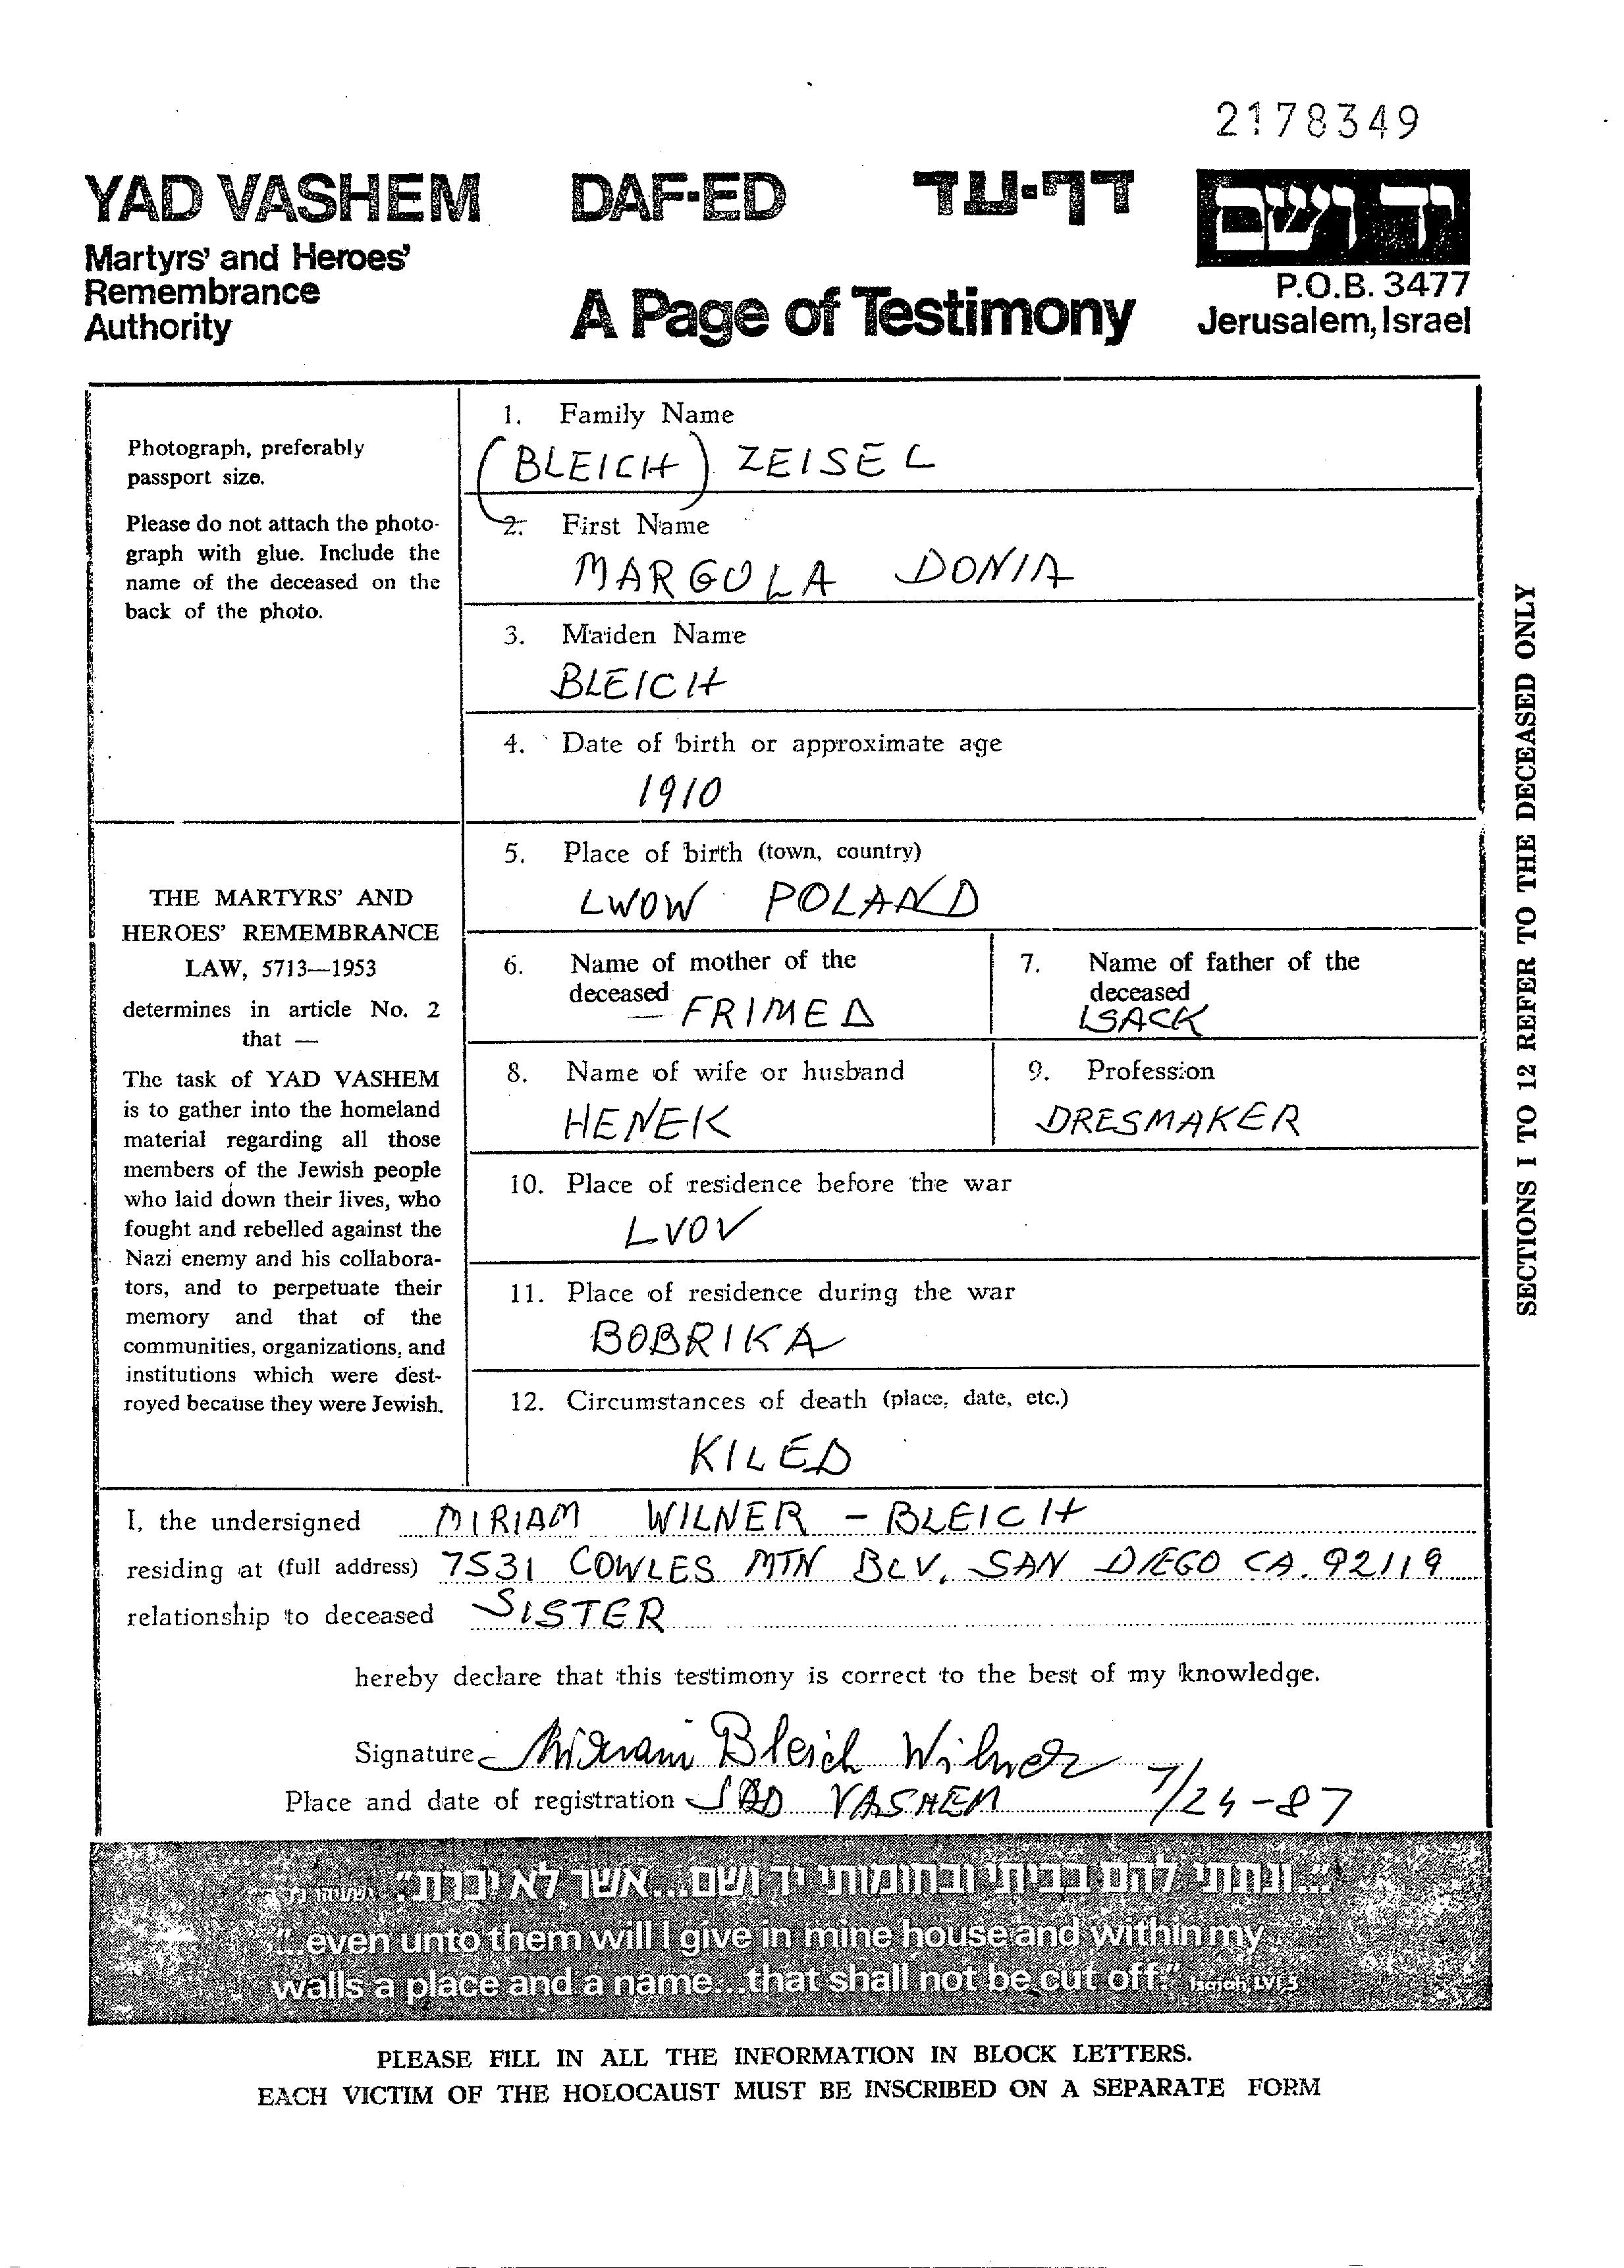 2178349
YAD VASHEM DAF-ED דף-עד יד ושם
Martyrs' and Heroes'
Remembrance
Authority
A Page of Testimony
P.O.B. 3477
Jerusalem, Israel
Photograph, preferably
passport size.
Please do not attach the photo-
graph with glue. Include the
name of the deceased on the
back of the photo.
THE MARTYRS' AND
HEROES' REMEMBRANCE
LAW, 5713—1953
determines in article No. 2
that —
The task of YAD VASHEM
is to gather into the homeland
material regarding all those
members of the Jewish people
who laid down their lives, who
fought and rebelled against the
Nazi enemy and his collabora-
tors, and to perpetuate their
memory and that of the
communities, organizations, and
institutions which were dest-
royed because they were Jewish.
1. Family Name
(BLEICH) ZEISEL
2. First Name
MARGULA DONIA
3. Maiden Name
BLEICH
4. Date of birth or approximate age
1910
5. Place of birth (town, country)
LWOW POLAND
6. Name of mother of the
deceased
— FRIMED
7. Name of father of the
deceased
ISACK
8. Name of wife or husband
HENEK
9. Profession
DRESMAKER
10. Place of residence before the war
LVOV
11. Place of residence during the war
BOBRIKA
12. Circumstances of death (place, date, etc.)
KILED
SECTIONS 1 TO 12 REFER TO THE DECEASED ONLY
I, the undersigned MIRIAM WILNER - BLEICH
residing at (full address) 7531 COWLES MTN BLV. SAN DIEGO CA. 92119
relationship to deceased SISTER
hereby declare that this testimony is correct to the best of my knowledge.
Signature Miriam Bleich Wilner
Place and date of registration JAD VASHEM 7/24-87
"...ונתתי להם בביתי ובחומותי יד ושם...אשר לא יכרת" ישעיהו
"...even unto them will I give in mine house and within my
walls a place and a name...that shall not be cut off." Isaiah, LVI, 5
PLEASE FILL IN ALL THE INFORMATION IN BLOCK LETTERS.
EACH VICTIM OF THE HOLOCAUST MUST BE INSCRIBED ON A SEPARATE FORM